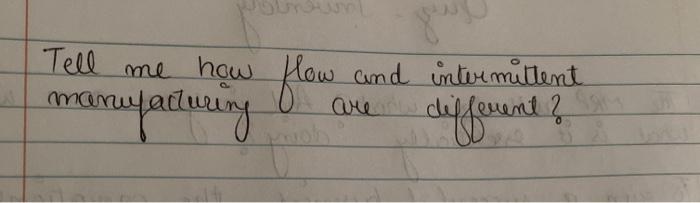 Tell me how flow and intermittent
manufacturing are different?